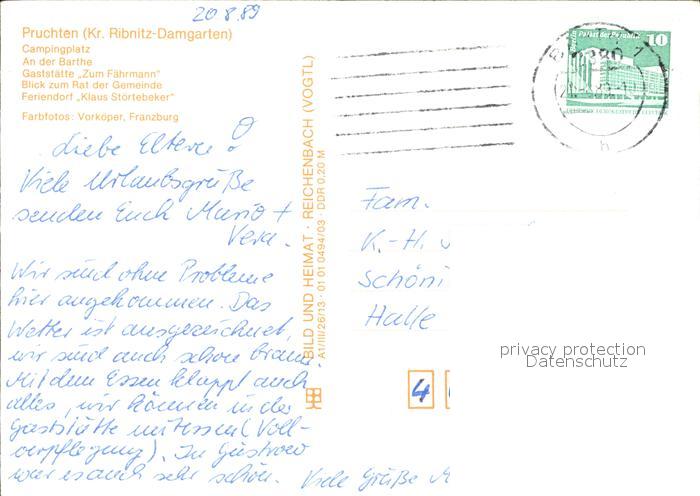 20 8.89
Pruchten (Kr. Ribnitz-Damgarten)
Campingplatz
An der Barthe
Gaststätte „Zum Fährmann"
Blick zum Rat der Gemeinde
Feriendorf „Klaus Störtebeker"
Farbfotos: Vorköper, Franzburg
Liebe Eltern!
Viele Urlaubsgrüße
senden Euch Mario +
Vera.
Wir sind ohne Probleme
hier angekommen. Das
Wetter ist ausgezeichnet,
wir sind auch schon braun.
Mit dem Essen klappt auch
alles, wir können in der
Gaststätte mitessen (Voll-
verpflegung). In Güstrow
war es auch sehr schön. Viele Grüße M
BILD UND HEIMAT · REICHENBACH (VOGTL)
A1/III/26/13 · 01 01 0494/03 · DDR 0,20 M
Palast der Republik 10
Fam.
K.-H. u
Schöni
Halle
4
privacy protection
Datenschutz